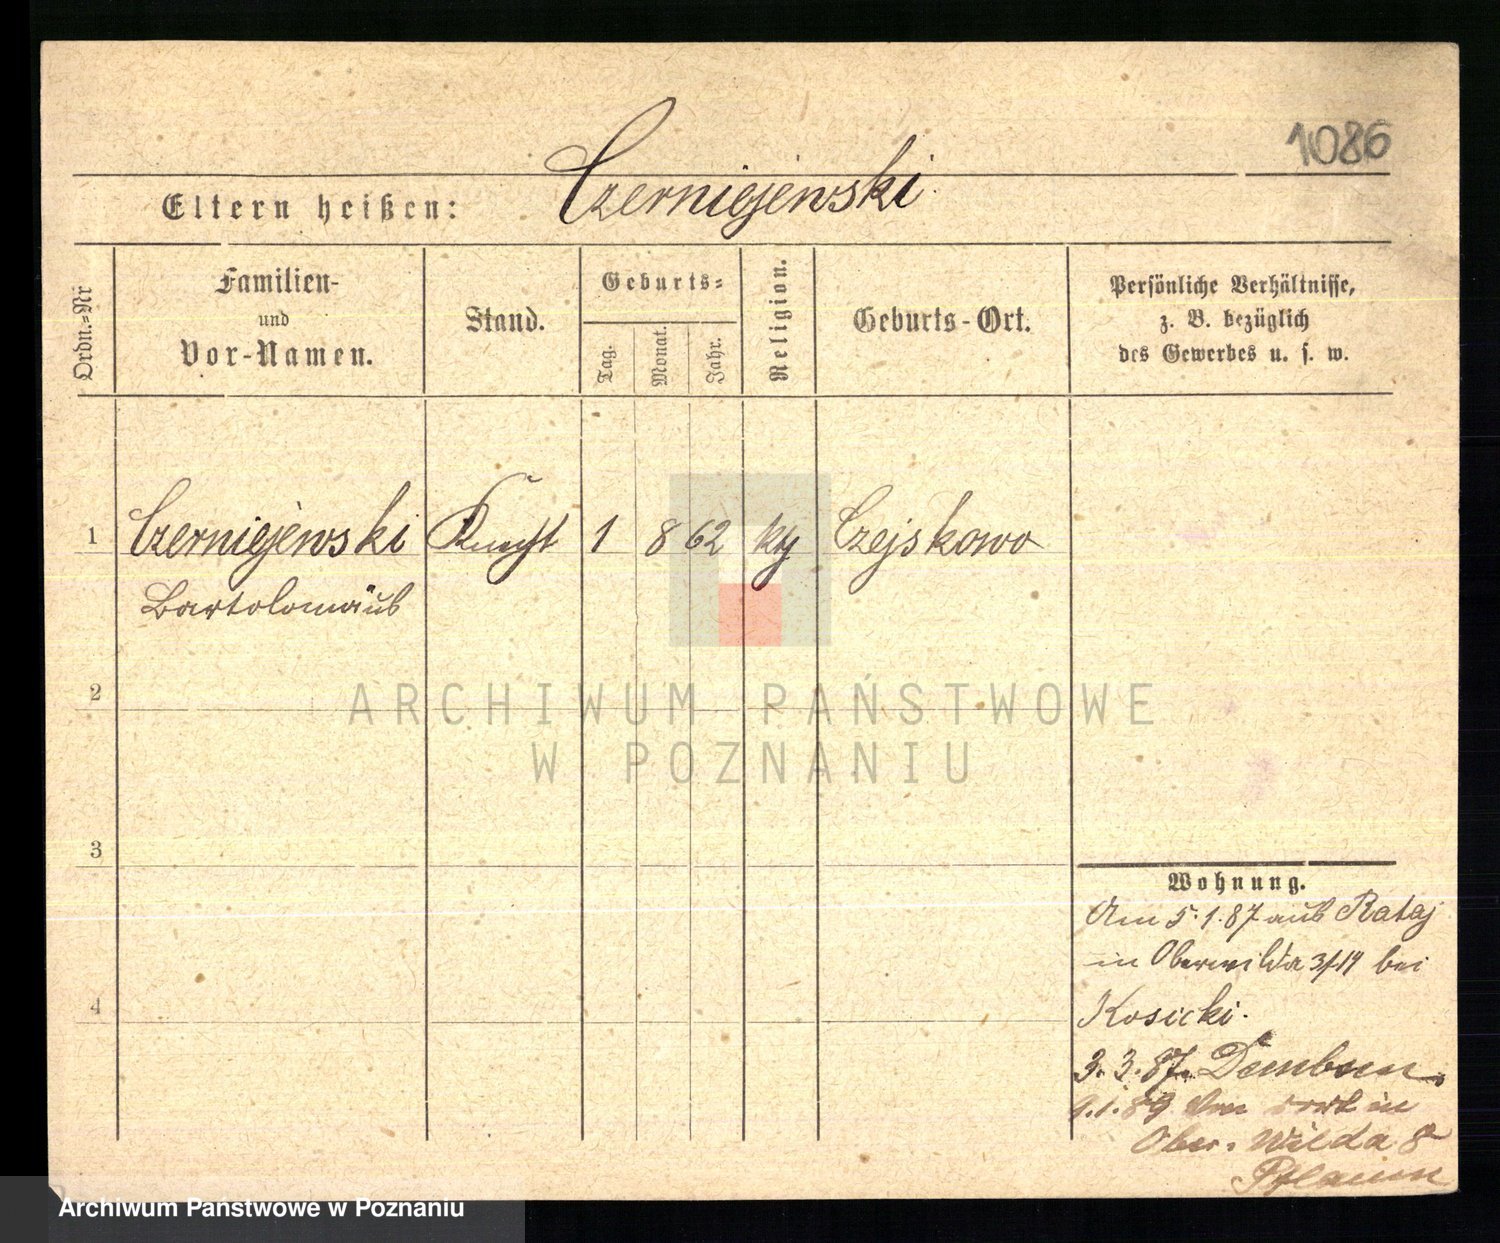 1086
Eltern heißen: Czerniejewski
Ordn.-Nr
Familien-
und
Vor-Namen.
Stand.
Geburts-
Tag.
Monat.
Jahr.
Religion.
Geburts-Ort.
Persönliche Verhältnisse,
z. B. bezüglich
des Gewerbes u. s. w.
1 Czerniejewski Knecht 1 8 62 Czejskowo
Bartolomäus
2
3
4
Wohnung.
Am 5.1.87 aus Rataj
in Oberwilda bei
Kosicki.
3.3.87. Dembsen
9.1.89 Von dort in
Ober-Wilda 8
Pflaum
ARCHIWUM PAŃSTWOWE
W POZNANIU
Archiwum Państwowe w Poznaniu